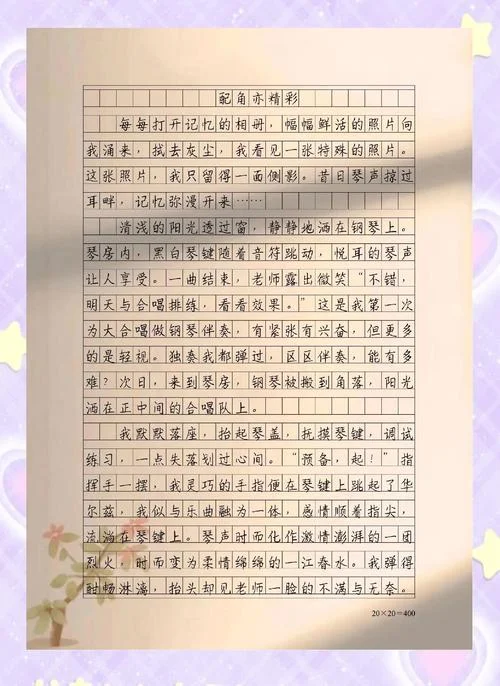 配角亦精彩
每每打开记忆的相册，幅幅鲜活的照片向
我涌来，拭去灰尘，我看见一张特殊的照片。
这张照片，我只留得一面侧影。昔日琴声掠过
耳畔，记忆弥漫开来……
清浅的阳光透过窗，静静地洒在钢琴上。
琴房内，黑白琴键随着音符跳动，悦耳的琴声
让人享受。一曲结束，老师露出微笑“不错，
明天与合唱排练，看看效果。”这是我第一次
为大合唱做钢琴伴奏，有紧张有兴奋，但更多
的是轻视。独奏我都弹过，区区伴奏，能有多
难？次日，来到琴房，钢琴被搬到角落，阳光
洒在正中间的合唱队上。
我默默落座，抬起琴盖，抚摸琴键，调试
练习，一点失落划过心间。“预备，起！”指
挥手一摆，我灵巧的手指便在琴键上跳起了华
尔兹，我似与乐曲融为一体，感情顺着指尖，
流淌在琴键上。琴声时而化作激情澎湃的一团
烈火，时而变为柔情绵绵的一江春水。我弹得
酣畅淋漓，抬头却见老师一脸的不满与无奈。
20×20=400